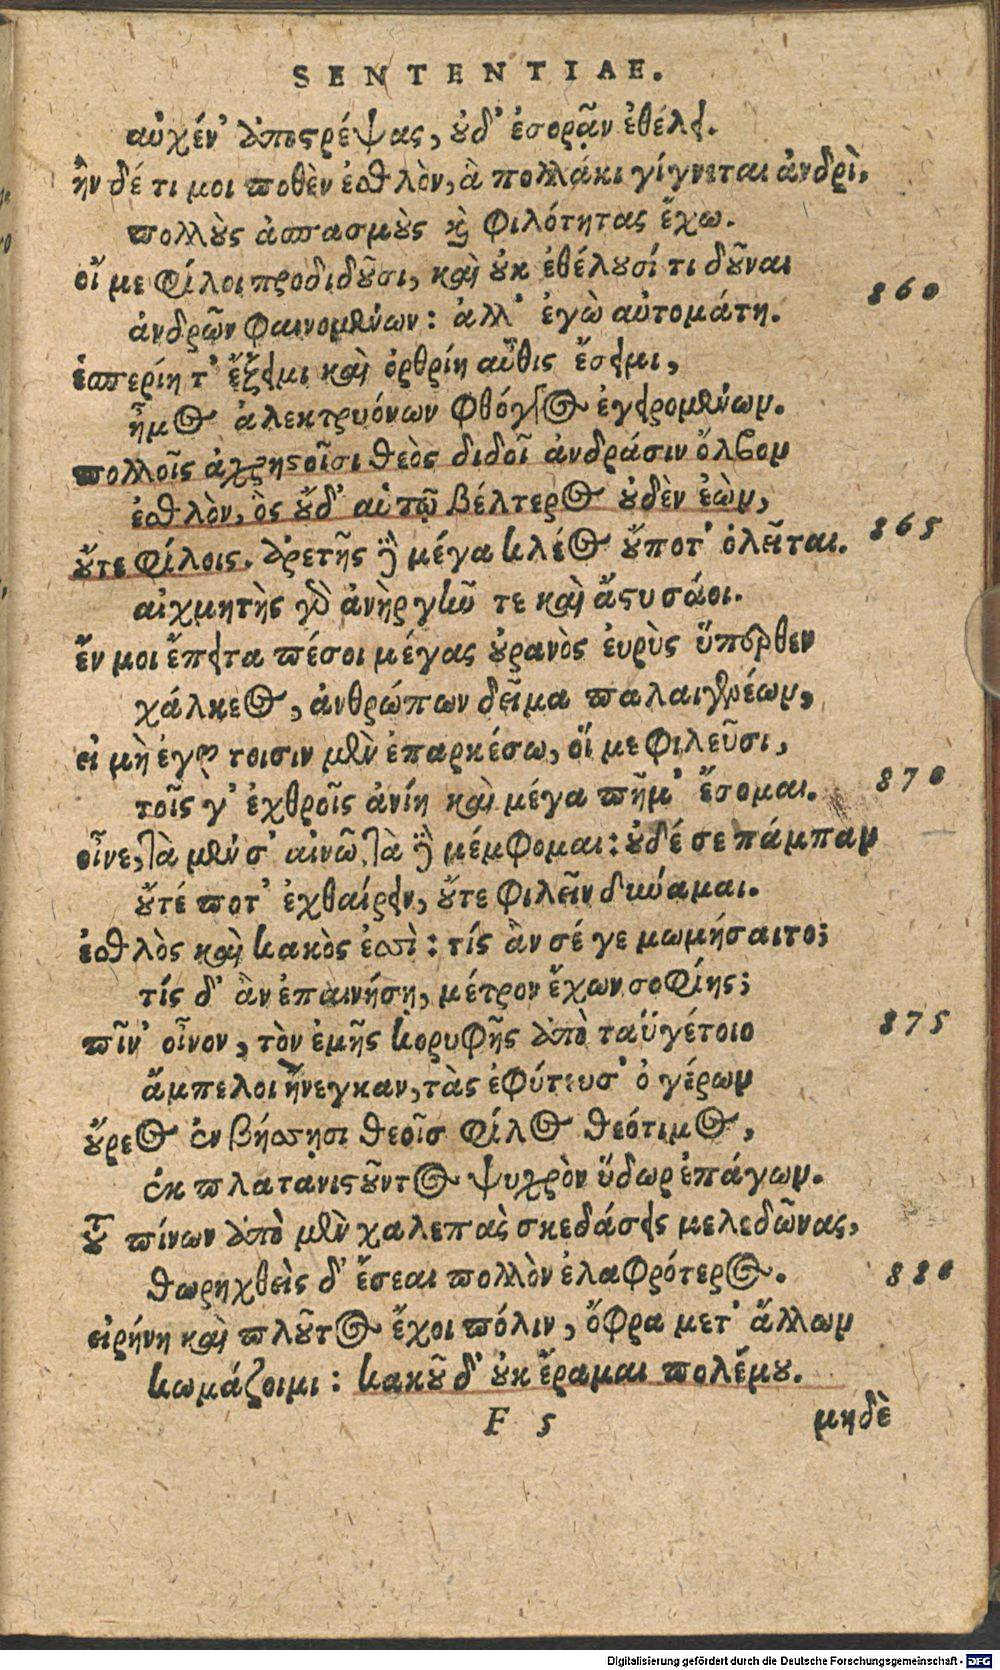 SENTENTIAE.
αὐχέν' ἀποστρέψας, οὐδ' ἐσορᾷν ἐθέλει.
ἢν δέ τι μοι ποθὲν ἐσθλὸν, ἃ πολλάκι γίγνεται ἀνδρὶ,
πολλοὺς ἀσπασμοὺς καὶ φιλότητας ἔχω.
οἵ με φίλοι προδιδοῦσι, καὶ οὐκ ἐθέλουσί τι δοῦναι
860
ἀνδρῶν φαινομένων: ἀλλ' ἐγὼ αὐτομάτη.
ἑσπερίη τ' ἔξειμι καὶ ὀρθρίη αὖθις ἔσειμι,
ἦμος ἀλεκτρυόνων φθόγγος ἐγειρομένων.
πολλοῖς ἀχρηστοῖσι θεὸς διδοῖ ἀνδράσιν ὄλβον
ἐσθλὸν, ὃς οὔδ' αὐτῷ βέλτερος οὐδὲν ἐὼν,
865
οὔτε φίλοις. ἀρετῆς δὲ μέγα κλέος οὔποτ' ὀλεῖται.
αἰχμητὴς γὰρ ἀνὴρ γῆν τε καὶ ἄστυ σάοι.
ἔν μοι ἔπειτα πέσοι μέγας οὐρανὸς εὐρὺς ὕπερθεν
χάλκεος, ἀνθρώπων δεῖμα παλαιγενέων,
εἰ μὴ ἐγὼ τοισιν μὲν ἐπαρκέσω, οἵ με φιλεῦσι,
870
τοῖς γ' ἐχθροῖς ἀνίη καὶ μέγα πῆμ' ἔσομαι.
οἶνε, τὰ μὲν σ' αἰνῶ, τὰ δὲ μέμφομαι: οὐδέ σε πάμπαν
οὔτέ ποτ' ἐχθαίρειν, οὔτε φιλεῖν δύναμαι.
ἐσθλὸς καὶ κακὸς ἐσσὶ: τίς ἂν σέ γε μωμήσαιτο;
τίς δ' ἂν ἐπαινήσῃ, μέτρον ἔχων σοφίης;
875
πῖν' οἶνον, τὸν ἐμῆς κορυφῆς ἀπὸ ταϋγέτοιο
ἄμπελοι ἤνεγκαν, τὰς ἐφύτευσ' ὁ γέρων
οὔρεος ἐν βήσσῃσι θεοῖσι φίλος θεότιμος,
ἐκ πλατανιστοῦντος ψυχρὸν ὕδωρ ἐπάγων.
τοῦ πίνων ἀπὸ μὲν χαλεπὰς σκεδάσεις μελεδῶνας,
880
θωρηχθεὶς δ' ἔσεαι πολλὸν ἐλαφρότερος.
εἰρήνη καὶ πλοῦτος ἔχοι πόλιν, ὄφρα μετ' ἄλλων
κωμάζοιμι: κακοῦ δ' οὐκ ἔραμαι πολέμου.
F 5
μηδὲ
Digitalisierung gefördert durch die Deutsche Forschungsgemeinschaft - DFG